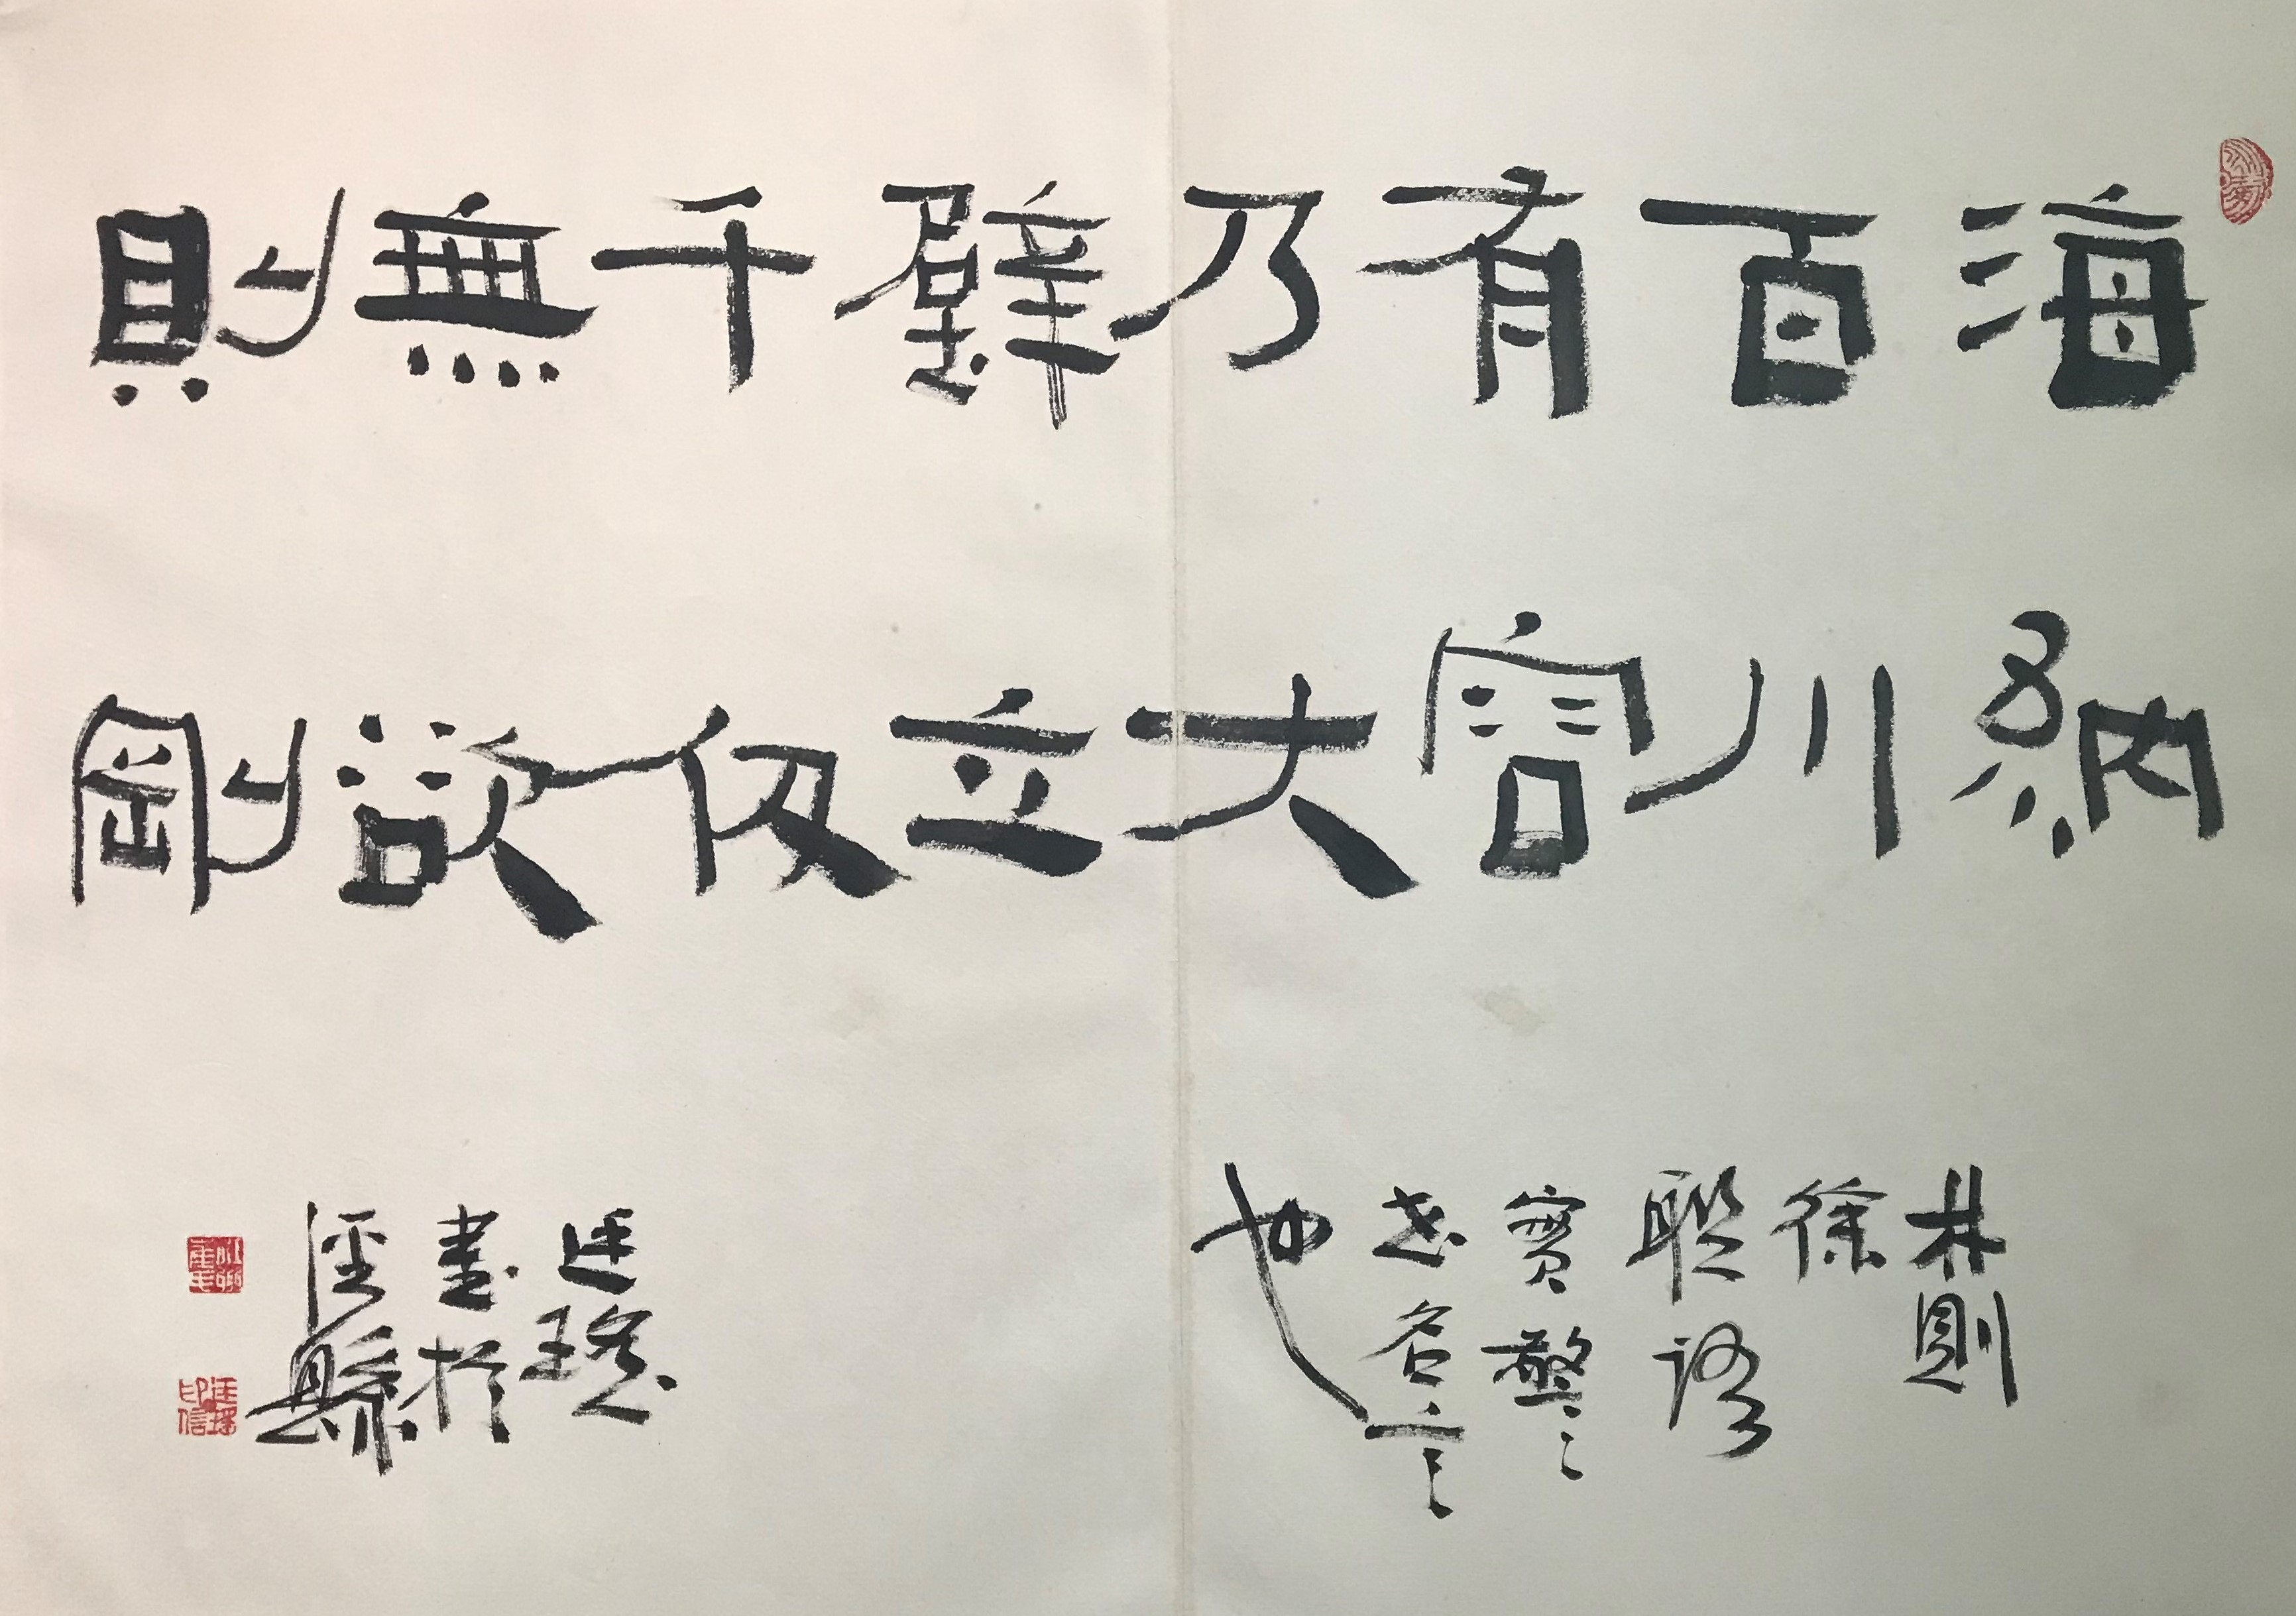 海納
百川
有容
乃大
壁立
千仞
無欲
則剛
林則
徐
聯語
實警
世名言
也
書於
涇縣